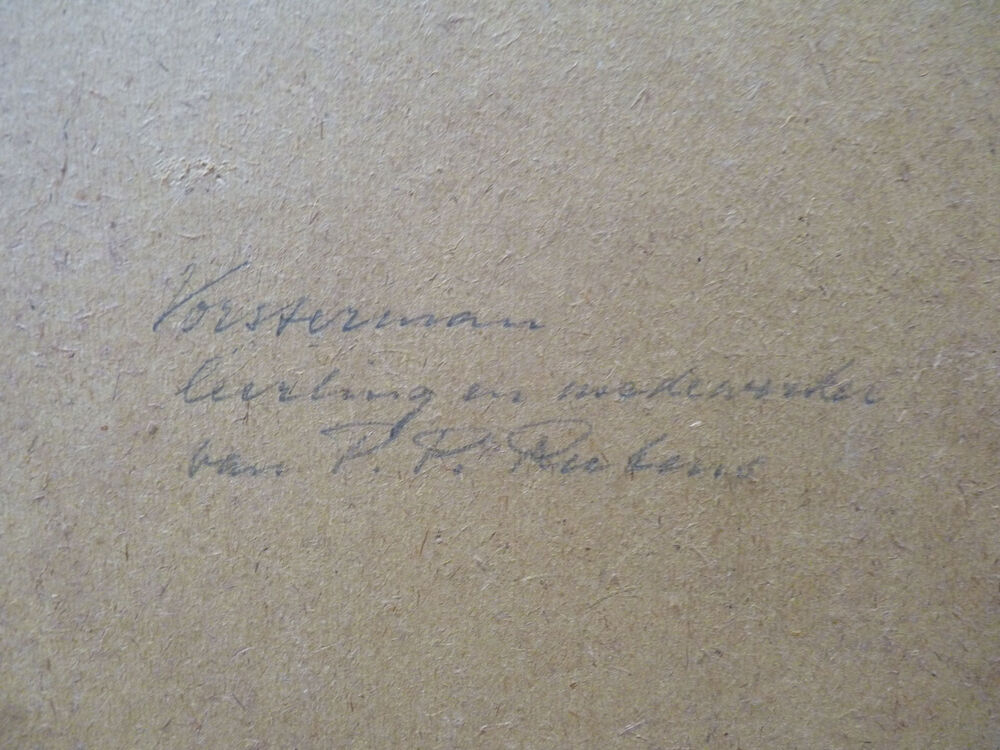 Vorsterman
leerling en medewerker
van P. P. Rubens